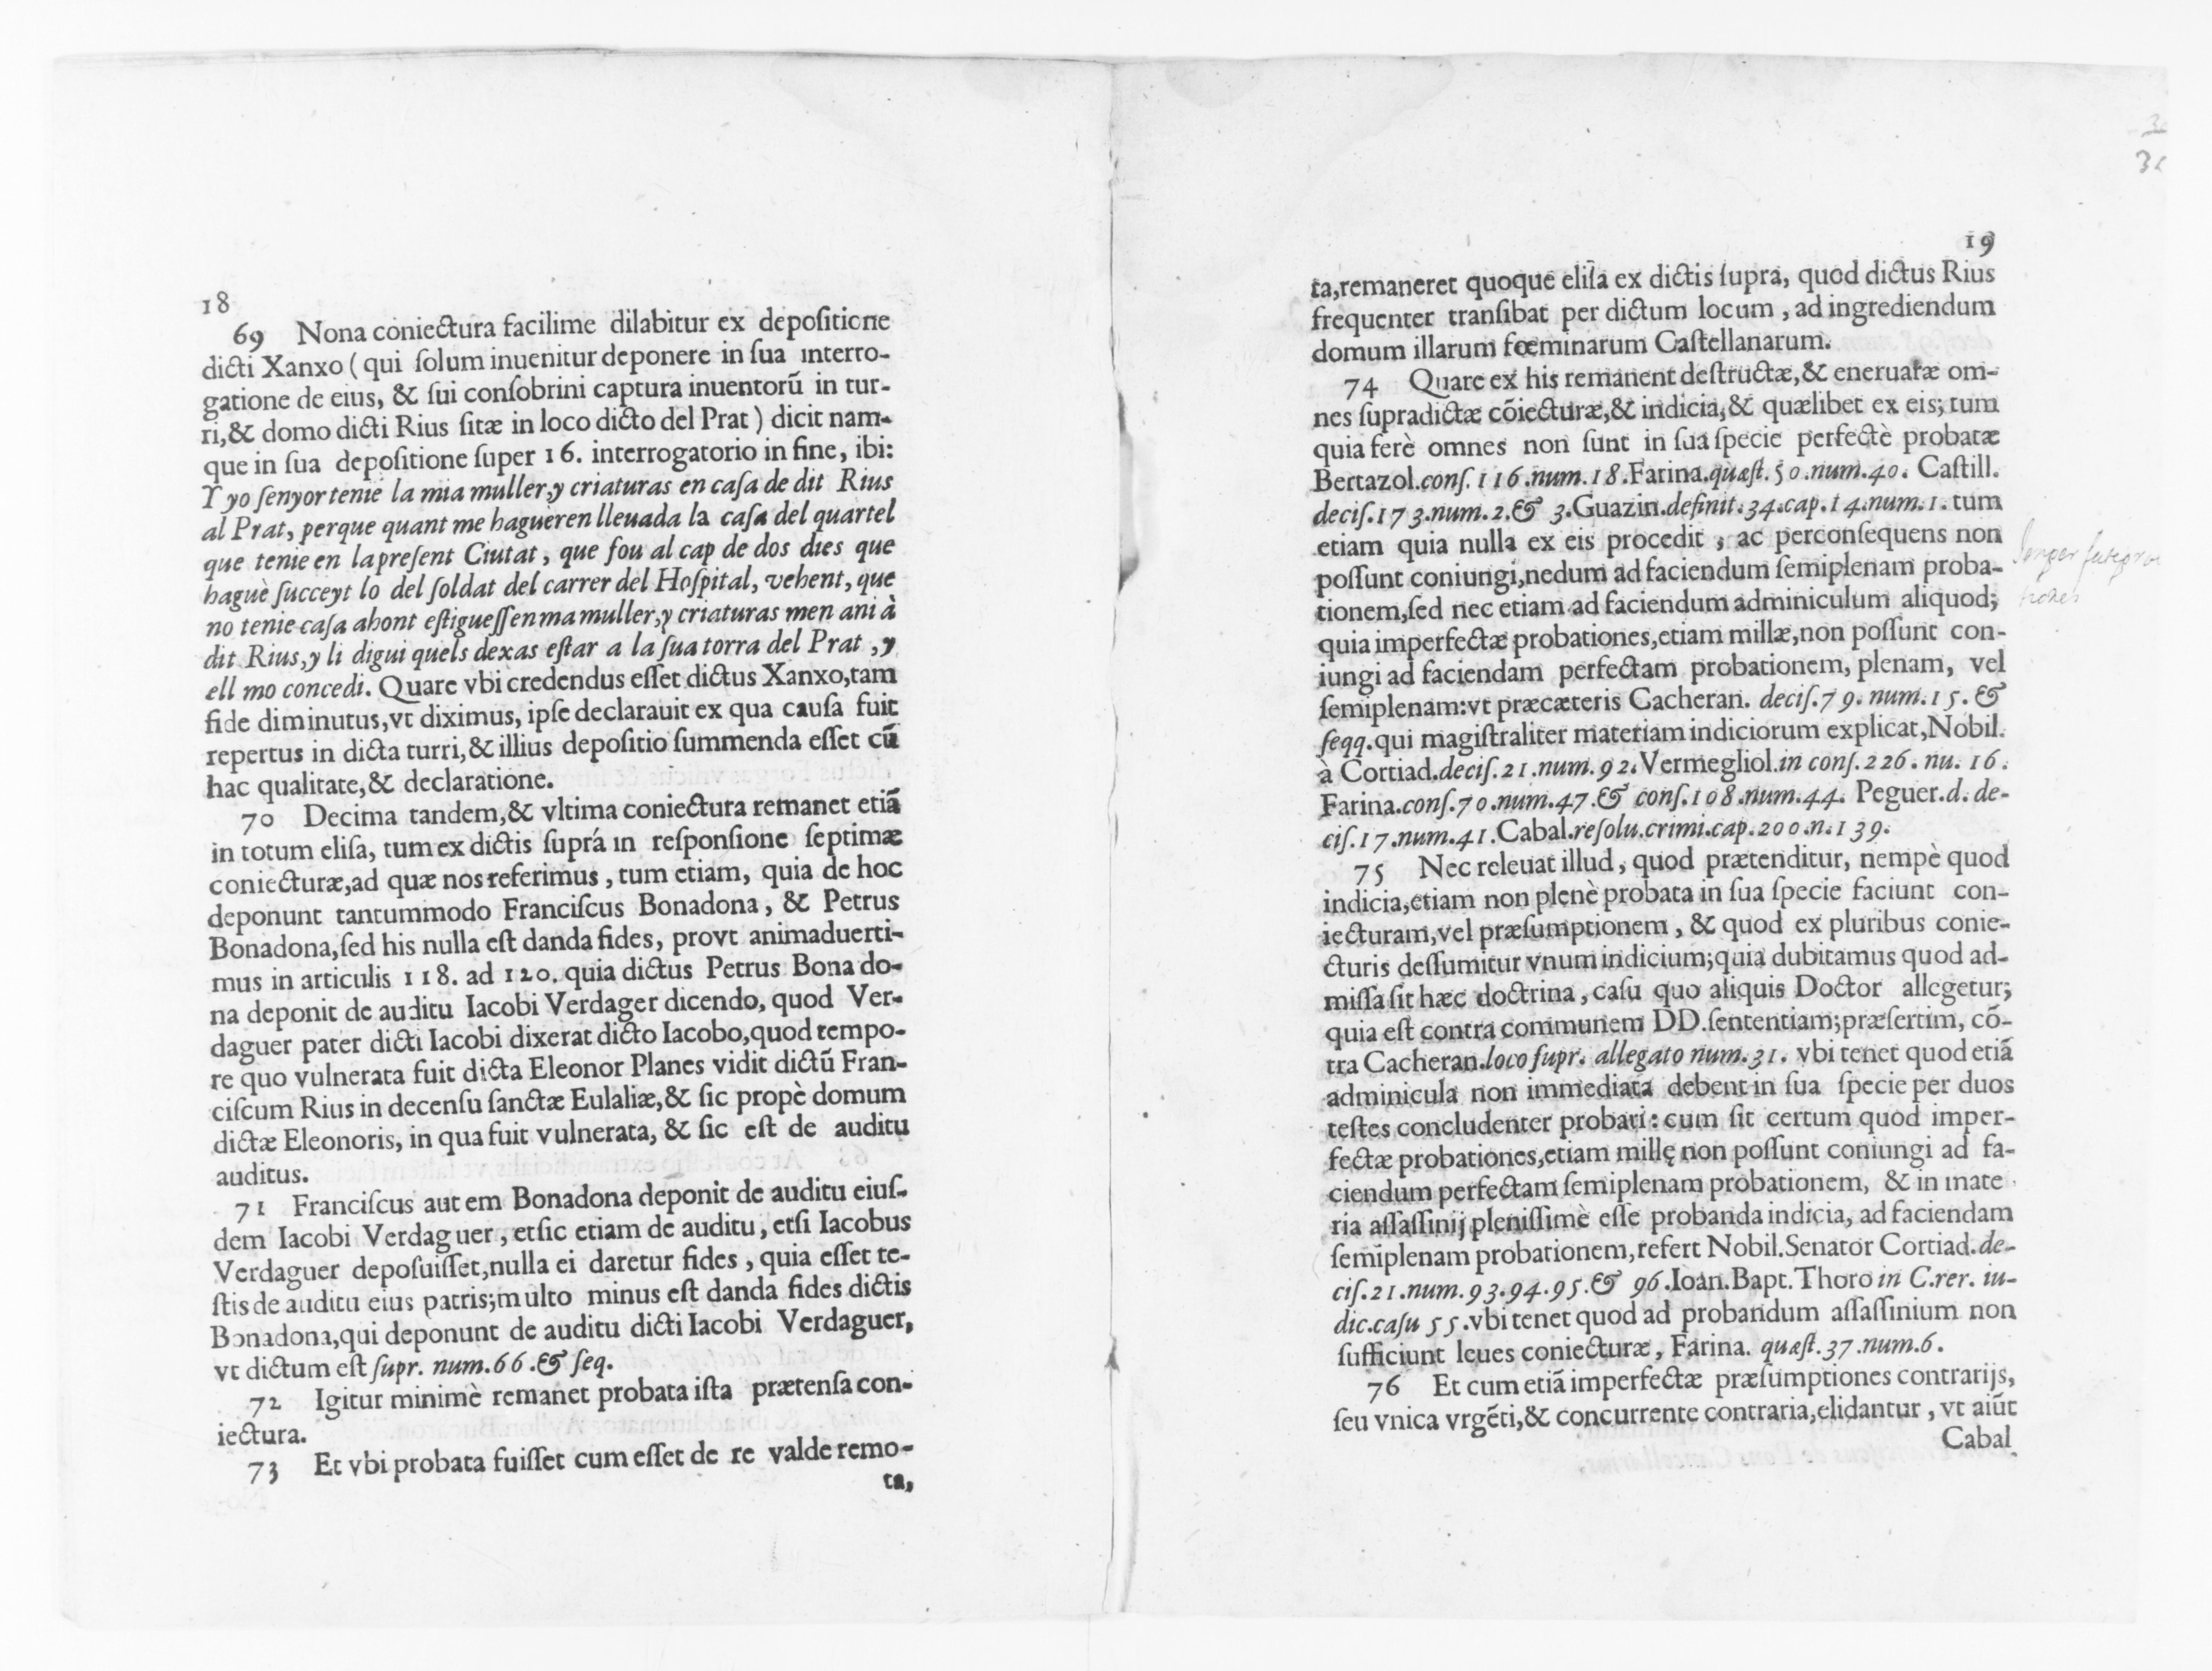 18
69 Nona coniectura facilime dilabitur ex depositione
dicti Xanxo ( qui ſolum inuenitur deponere in ſua interro-
gatione de eius, & ſui conſobrini captura inuentorũ in tur-
ri, & domo dicti Rius ſitæ in loco dicto del Prat ) dicit nam-
que in ſua depoſitione ſuper 16. interrogatorio in fine, ibi:
Y yo ſenyor tenie la mia muller, y criaturas en caſa de dit Rius
al Prat, perque quant me haguèren lleuada la caſa del quartel
que tenie en la preſent Ciutat, que fou al cap de dos dies que
haguè ſucceyt lo del ſoldat del carrer del Hoſpital, vehent, que
no tenie caſa ahont eſtigueſſen ma muller, y criaturas men ani à
dit Rius, y li digui quels dexas eſtar a la ſua torra del Prat, y
ell mo concedi. Quare vbi credendus eſſet dictus Xanxo, tam
fide diminutus, vt diximus, ipſe declarauit ex qua cauſa fuit
repertus in dicta turri, & illius depoſitio ſummenda eſſet cũ
hac qualitate, & declaratione.
70 Decima tandem, & vltima coniectura remanet etiã
in totum eliſa, tum ex dictis ſuprá in reſponſione ſeptimæ
coniecturæ, ad quæ nos referimus, tum etiam, quia de hoc
deponunt tantummodo Franciſcus Bonadona, & Petrus
Bonadona, ſed his nulla eſt danda fides, provt animaduerti-
mus in articulis 118. ad 120. quia dictus Petrus Bonado-
na deponit de auditu Iacobi Verdager dicendo, quod Ver-
daguer pater dicti Iacobi dixerat dicto Iacobo, quod tempo-
re quo vulnerata fuit dicta Eleonor Planes vidit dictũ Fran-
ciſcum Rius in decenſu ſanctæ Eulaliæ, & ſic propè domum
dictæ Eleonoris, in qua fuit vulnerata, & ſic eſt de auditu
auditus.
71 Franciſcus autem Bonadona deponit de auditu eiuſ-
dem Iacobi Verdaguer, etſic etiam de auditu, etſi Iacobus
Verdaguer depoſuiſſet, nulla ei daretur fides, quia eſſet te-
ſtis de auditu eius patris; multo minus eſt danda fides dictis
Bonadona, qui deponunt de auditu dicti Iacobi Verdaguer,
vt dictum eſt ſupr. num. 66. & ſeq.
72 Igitur minimè remanet probata iſta prætenſa con-
iectura.
73 Et vbi probata fuiſſet cum eſſet de re valde remo-
ta,
19
ta, remaneret quoque eliſa ex dictis ſupra, quod dictus Rius
frequenter tranſibat per dictum locum, ad ingrediendum
domum illarum fœminarum Caſtellanarum.
74 Quare ex his remanent deſtructæ, & eneruatæ om-
nes ſupradictæ cõiecturæ, & indicia, & quælibet ex eis; tum
quia ferè omnes non ſunt in ſua ſpecie perfectè probatæ
Bertazol. conſ. 116. num. 18. Farina. quæſt. 50. num. 40. Caſtill.
deciſ. 173. num. 2. & 3. Guazin. definit. 34. cap. 14. num. 1. tum
etiam quia nulla ex eis procedit, ac perconſequens non
poſſunt coniungi, nedum ad faciendum ſemiplenam proba-
tionem, ſed nec etiam ad faciendum adminiculum aliquod;
quia imperfectæ probationes, etiam millæ, non poſſunt con-
iungi ad faciendam perfectam probationem, plenam, vel
ſemiplenam: vt præcæteris Cacheran. deciſ. 79. num. 15. &
ſeqq. qui magiſtraliter materiam indiciorum explicat, Nobil.
à Cortiad. deciſ. 21. num. 92. Vermegliol. in conſ. 226. nu. 16.
Farina. conſ. 70. num. 47. & conſ. 108. num. 44. Peguer. d. de-
ciſ. 17. num. 41. Cabal. reſolu. crimi. cap. 200. n. 139.
75 Nec releuat illud, quod prætenditur, nempè quod
indicia, etiam non plenè probata in ſua ſpecie faciunt con-
iecturam, vel præſumptionem, & quod ex pluribus conie-
cturis deſſumitur vnum indicium; quia dubitamus quod ad-
miſſa ſit hæc doctrina, caſu quo aliquis Doctor allegetur;
quia eſt contra communem DD. ſententiam; præſertim, cõ-
tra Cacheran. loco ſupr. allegato num. 31. vbi tenet quod etiã
adminicula non immediata debent in ſua ſpecie per duos
teſtes concludenter probari: cum ſit certum quod imper-
fectæ probationes, etiam millę non poſſunt coniungi ad fa-
ciendum perfectam ſemiplenam probationem, & in mate
ria aſſaſſinij pleniſſimè eſſe probanda indicia, ad faciendam
ſemiplenam probationem, refert Nobil. Senator Cortiad. de-
ciſ. 21. num. 93. 94. 95. & 96. Ioan. Bapt. Thoro in C. rer. iu-
dic. caſu 55. vbi tenet quod ad probandum aſſaſſinium non
ſufficiunt leues coniecturæ, Farina. quæſt. 37. num. 6.
76 Et cum etiã imperfectæ præſumptiones contrarijs,
ſeu vnica vrgẽti, & concurrente contraria, elidantur, vt aiũt
Cabal